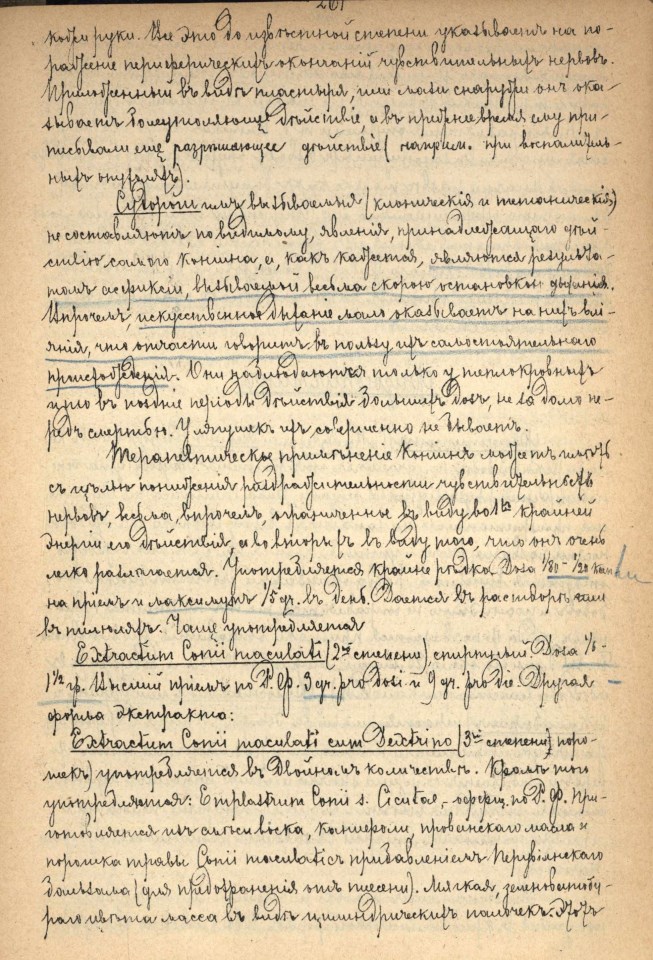 261
кожи руки. Все это до извѣстной степени указываетъ на по-
раженіе периферическихъ окончаній чувствительныхъ нервовъ.
Приложенный въ видѣ пластыря, или мази снаружи онъ ока-
зываетъ болеутоляющее дѣйствіе, а въ прежнее время ему при-
писывали еще разрѣшающее дѣйствіе (наприм. при воспалитель-
ныхъ опухоляхъ).
Судороги имъ вызываемыя (клоническія и тетаническія)
не составляютъ, повидимому, явленія, принадлежащаго дѣй-
ствію самого коніина, а, какъ кажется, являются результа-
томъ асфиксіи, вызываемой весьма скорою остановкой дыханія.
Впрочемъ, искуственное дыханіе мало оказываетъ на нихъ влі-
янія, что отчасти говоритъ въ пользу ихъ самостоятельнаго
происхожденія. Они наблюдаются только у теплокровныхъ
и то въ поздніе періоды дѣйствія большихъ дозъ, не задолго пе-
редъ смертью. У лягушекъ ихъ совершенно не бываетъ.
Терапевтическое примѣненіе Коніинъ можетъ имѣть
съ цѣлью пониженія раздражительности чувствительныхъ
нервовъ, весьма, впрочемъ, ограниченное въ виду во 1хъ крайней
энергіи его дѣйствія, а во вторыхъ въ виду того, что онъ очень
легко разлагается. Употребляется крайне рѣдко. Доза 1/80 - 1/20 капли
на пріемъ и максимумъ 1/5 gr. въ день. Дается въ растворѣ или
въ пилюляхъ. Чаще употребляется
Extractum Conii maculati (2ой степени), спиртный. Доза 1/6 -
1 1/2 gr. Высшій пріемъ по Р. Ф. 3 gr. pro dosi и 9 gr. pro die. Другая
форма экстракта:
Extractum Conii maculati cum Dextrino (3ей степени, поро-
шекъ) употребляется въ двойномъ количествѣ. Кромѣ того
употребляется: Emplastrum Conii s. Cicutae, - оффиц. по Р. Ф. При-
готовляется изъ смѣси воска, канифоли, прованскаго масла и
порошка травы Conii maculati съ прибавленіемъ Перувіянскаго
бальзама (для предохраненія отъ плесени). Мягкая, зеленоватобу-
раго цвѣта масса въ видѣ цилиндрическихъ палочекъ. Этотъ